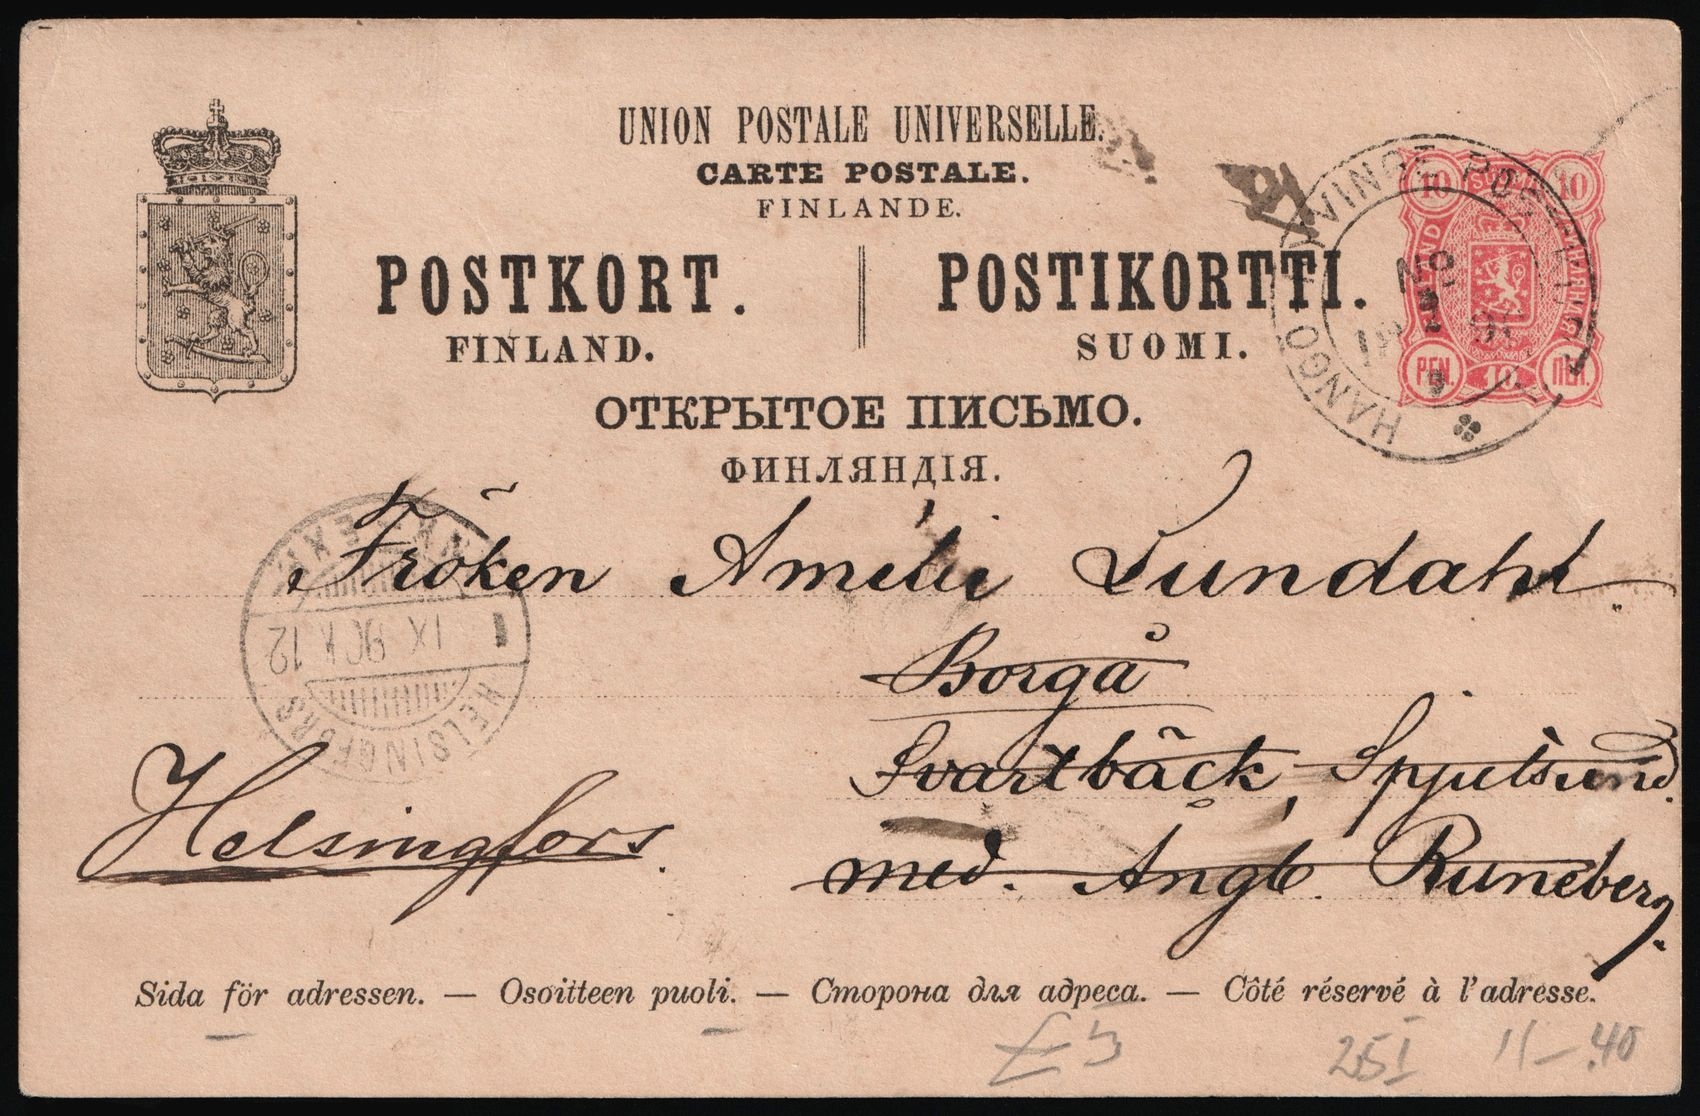 UNION POSTALE UNIVERSELLE.
CARTE POSTALE.
FINLANDE.
POSTKORT. POSTIKORTTI.
FINLAND. SUOMI.
ОТКРЫТОЕ ПИСЬМО.
ФИНЛЯНДІЯ.
10 10
PEN. 10 ПЕН.
HANGÖ
No 2
HELSINGFORS
IX 12
Fröken Amélie Lundahl.
Borgå
Svartbäck, Spjutsund.
med. Ångb. Runeberg.
Helsingfors.
Sida för adressen. — Osoitteen puoli. — Сторона для адреса. — Côté réservé à l'adresse.
251 11-.40